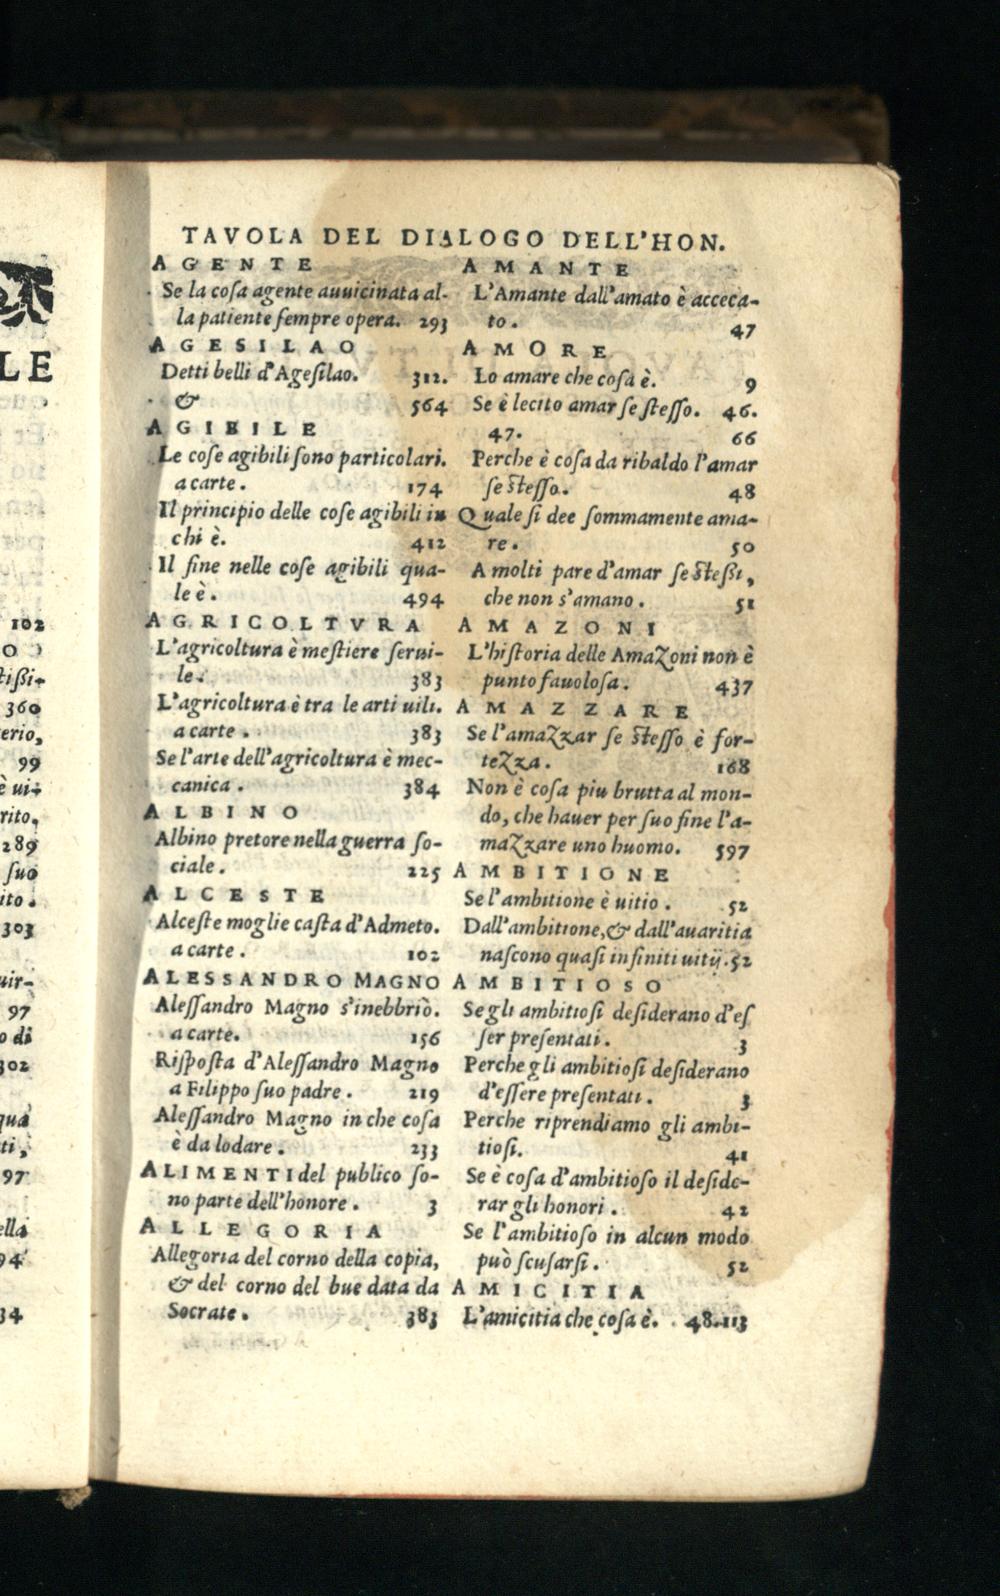 LE
102
O
tißi-
360
erio,
99
è ui-
rito,
289
ſuo
ito.
303
uir-
97
o di
302
qua
ti,
97
ella
94
34
TAVOLA DEL DIALOGO DELL'HON.
AGENTE
Se la coſa agente auuicinata al-
la patiente ſempre opera. 293
AGESILAO
Detti belli d'Ageſilao. 312.
& 564
AGIBILE
Le coſe agibili ſono particolari.
a carte. 174
Il principio delle coſe agibili in
chi è. 412
Il fine nelle coſe agibili qua-
le è. 494
AGRICOLTVRA
L'agricoltura è meſtiere ſerui-
le. 383
L'agricoltura è tra le arti uili.
a carte. 383
Se l'arte dell'agricoltura è mec-
canica. 384
ALBINO
Albino pretore nella guerra ſo-
ciale. 225
ALCESTE
Alceſte moglie caſta d'Admeto.
a carte. 102
ALESSANDRO MAGNO
Aleſſandro Magno s'inebbriò.
a carte. 156
Riſpoſta d'Aleſſandro Magno
a Filippo ſuo padre. 219
Aleſſandro Magno in che coſa
è da lodare. 233
ALIMENTI del publico ſo-
no parte dell'honore. 3
ALLEGORIA
Allegoria del corno della copia,
& del corno del bue data da
Socrate. 383
AMANTE
L'Amante dall'amato è acceca-
to. 47
AMORE
Lo amare che coſa è. 9
Se è lecito amar ſe ſteſſo. 46.
47. 66
Perche è coſa da ribaldo l'amar
ſe ſteſſo. 48
Quale ſi dee ſommamente ama-
re. 50
A molti pare d'amar ſe ſteßi,
che non s'amano. 51
AMAZONI
L'hiſtoria delle Amazoni non è
punto fauoloſa. 437
AMAZZARE
Se l'amazzar ſe ſteſſo è for-
tezza. 168
Non è coſa piu brutta al mon-
do, che hauer per ſuo fine l'a-
mazzare uno huomo. 597
AMBITIONE
Se l'ambitione è uitio. 52
Dall'ambitione, & dall'auaritia
naſcono quaſi infiniti uitij. 52
AMBITIOSO
Se gli ambitioſi deſiderano d'eſ
ſer preſentati. 3
Perche gli ambitioſi deſiderano
d'eſſere preſentati. 3
Perche riprendiamo gli ambi-
tioſi. 41
Se è coſa d'ambitioſo il deſide-
rar gli honori. 42
Se l'ambitioſo in alcun modo
può ſcuſarſi. 52
AMICITIA
L'amicitia che coſa è. 48.113